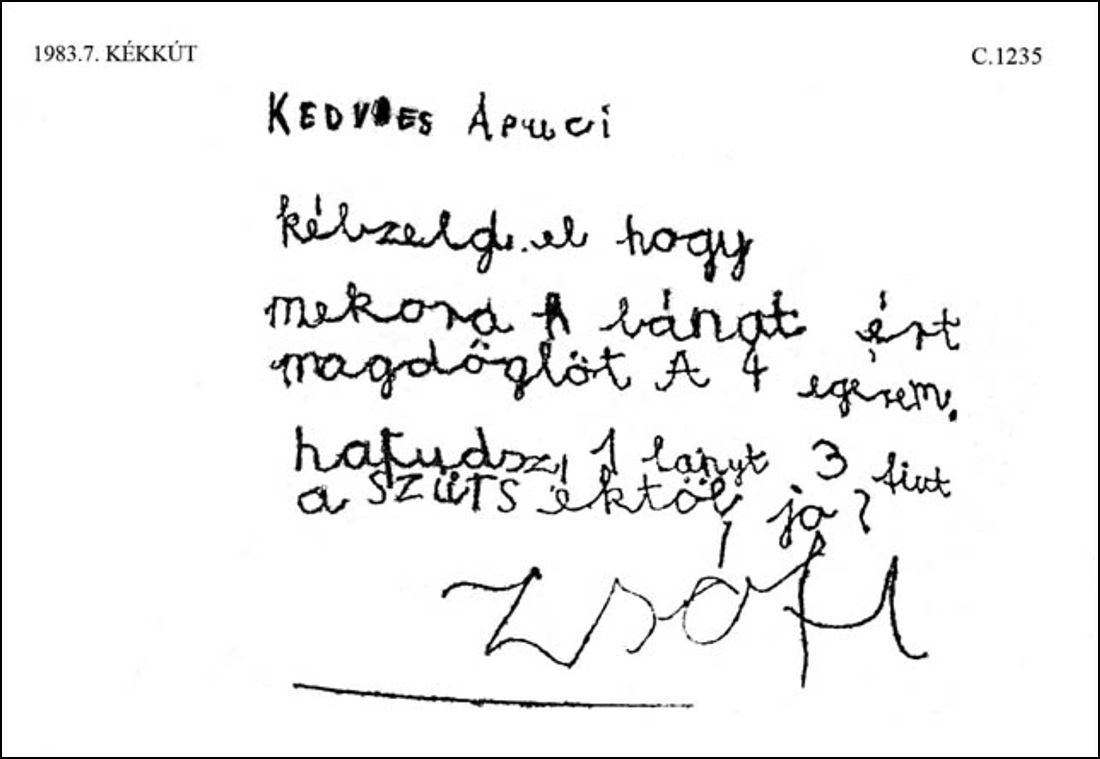 1983.7. KÉKKÚT
C.1235
KEDVES Apuci
kébzeld el hogy
mekora bánat ért
magdöglöt A 4 egerem.
hatudsz, 1 lányt 3 fiut
a SZÜTS éktöl, jó?
Zsófi